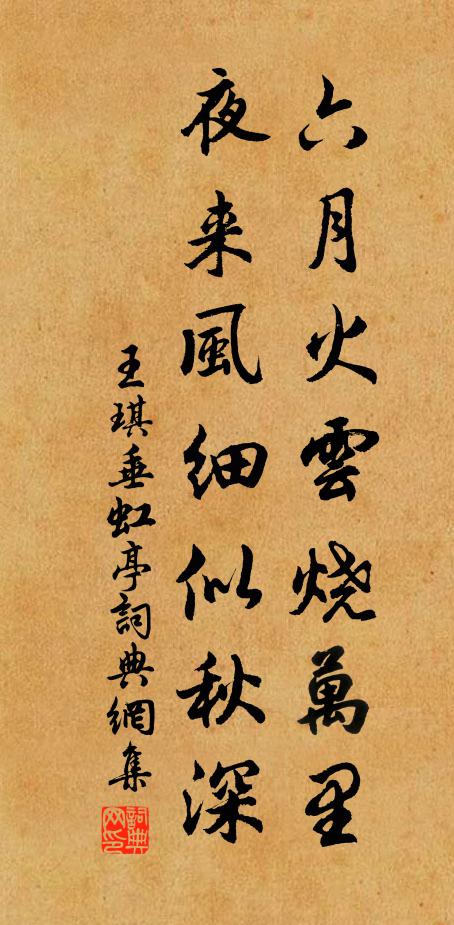 六月火雲燒萬里
夜来風細似秋深
王琪垂虹亭詞典網集
詞典网印